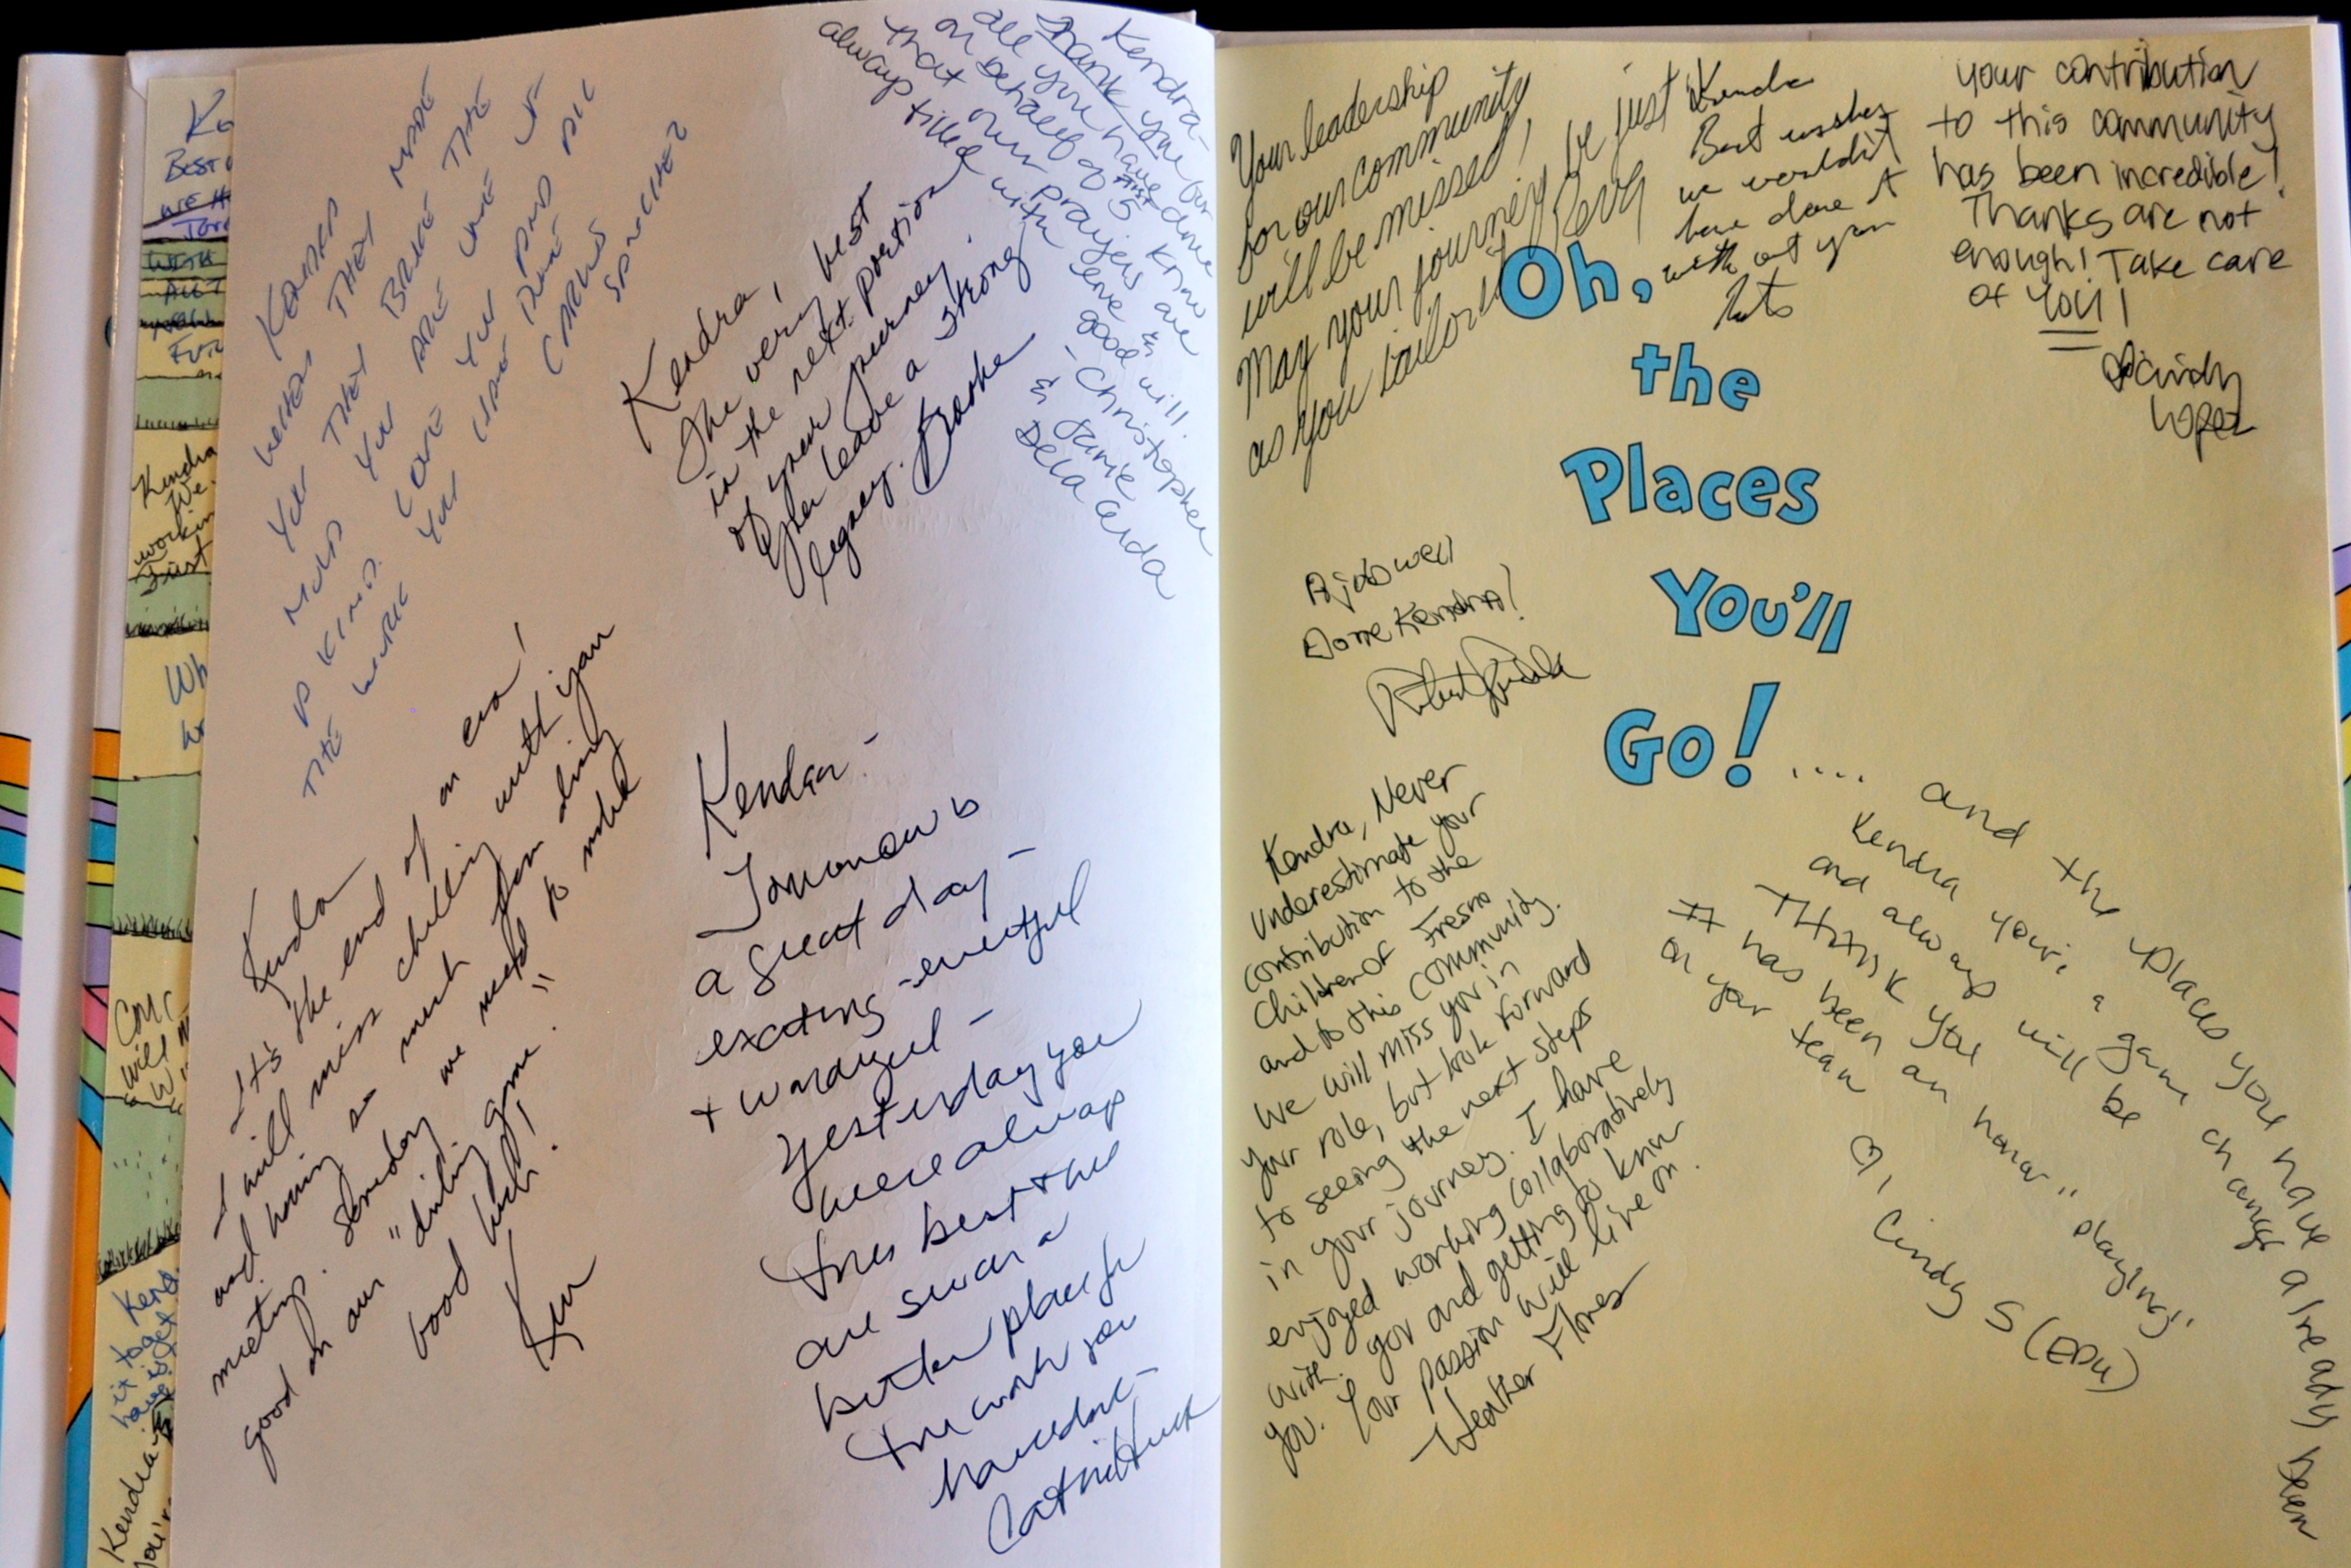 KENDRA
WHEN THEY MADE
YOU THEY BROKE THE
MOLD YOU ARE ONE OF
A KIND. LOVE YOU AND ALL
THE WORK YOU HAVE DONE
CARLOS
Kendra-
Thank you for
all you have done
on behalf of First 5 know
that our prayers are
always filled with love &
good will.
- Christopher
& Janie
De La Cerda
Kendra, best
The very
in the next portion
of your journey.
You leave a strong
legacy. Brooke
Kendra
It's the end of an era!
I will miss chilling with you
and having so much fun during
meetings. Someday we need to make
good on our "drinking game."
Good luck!
Ken
Kendra -
Tomorrow is
a great day -
exciting - eventful
+ wonderful -
Yesterday you
were always
the best + we
are such a
better place for
the work you
have done -
Kendra
We
workin
Just
Wh
Kend
it to a
Kendra
You'r
Your leadership
for our community
will be missed!
May your journey be just
as you tailor it
Kendra
Best wishes
we wouldn't
have done it
with out you
your contribution
to this community
has been incredible!
Thanks are not
enough! Take care
of YOU!
Cindy
Lopez
Oh,
the
Places
You'll
Go!
.... and the places you have already been
A job well
Done Kendra!
Kendra, Never
underestimate your
contribution to the
children of Fresno
and to this community.
We will miss you in
your role, but look forward
to seeing the next steps
in your journey. I have
enjoyed working collaboratively
with you and getting to know
you. Your passion will live on.
Heather Flores
Kendra your a game changer
and always will be
THANK you
It has been an honor "playing"
on your team
♡, Cindy S (EDU)